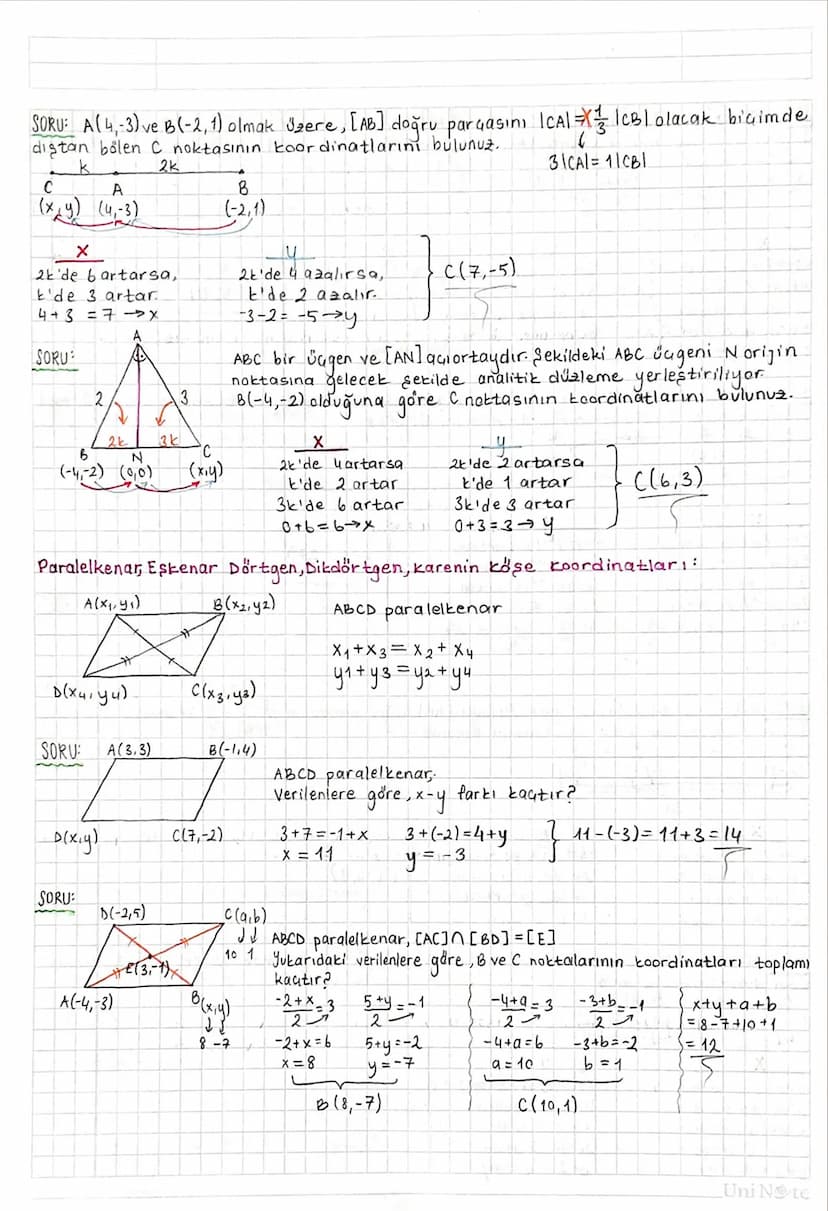 SORU: A(4,-3) ve B(-2,1) olmak üzere, [AB] doğru parçasını |CA|= 1/3 |CB| olacak biçimde
dıştan bölen C noktasının koordinatlarını bulunuz.
3|CA|= 1|CB|
k 2k
C A B
(x,y) (4,-3) (-2,1)
x y
2k'de 6 artarsa, 2k'de 4 azalırsa,
k'de 3 artar. k'de 2 azalır.
4+3 =7 →x -3-2= -5→y
C(7,-5)
SORU:
A
2 3
2k 3k
B N C
(-4,-2) (0,0) (x,y)
ABC bir üçgen ve [AN] açıortaydır. Şekildeki ABC üçgeni N orijin
noktasına gelecek şekilde analitik düzleme yerleştiriliyor.
B(-4,-2) olduğuna göre C noktasının koordinatlarını bulunuz.
x y
2k'de 4 artarsa 2k'de 2 artarsa
k'de 2 artar k'de 1 artar
3k'de 6 artar 3k'de 3 artar
0+6=6→x 0+3=3→y
C(6,3)
Paralelkenar, Eşkenar Dörtgen, Dikdörtgen, Karenin Köşe Koordinatları:
A(x1,y1) B(x2,y2)
D(x4,y4) C(x3,y3)
ABCD paralelkenar
x1+x3=x2+x4
y1+y3=y2+y4
SORU: A(3,3) B(-1,4)
D(x,y) C(7,-2)
ABCD paralelkenar,
Verilenlere göre, x-y farkı kaçtır?
3+7=-1+x 3+(-2)=4+y 11-(-3)=11+3=14
x=11 y=-3
SORU:
D(-2,5) C(a,b)
10 1
E(3,-1)
A(-4,-3) B(x,y)
8 -7
ABCD paralelkenar, [AC]∩[BD]=[E]
Yukarıdaki verilenlere göre, B ve C noktalarının koordinatları toplamı
kaçtır?
-2+x/2=3 5+y/2=-1 -4+a/2=3 -3+b/2=-1 x+y+a+b
-2+x=6 5+y=-2 -4+a=6 -3+b=-2 =8-7+10+1
x=8 y=-7 a=10 b=1 =12
B(8,-7) C(10,1)
UniNote